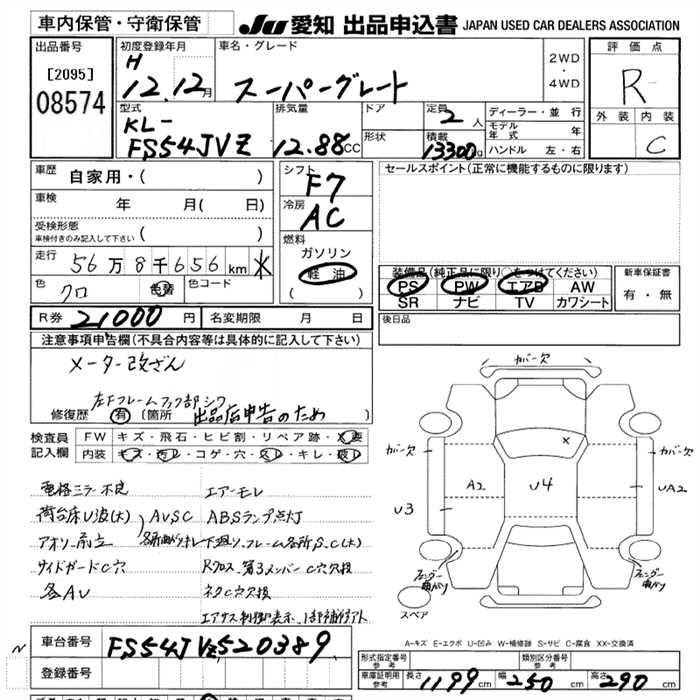 車内保管・守衛保管
JU 愛知 出品申込書 JAPAN USED CAR DEALERS ASSOCIATION
出品番号
[2095]
08574
初度登録年月
H
12.12月
車名・グレード
スーパーグレート
2WD
・
4WD
評価点
R
外装 内装
C
型式
KL-
FS54JVZ
排気量
12.88CC
ドア
形状
定員
2人
積載
13300kg
ディーラー・並行
モデル年式 年
ハンドル 左・右
車歴
自家用・( )
車検
年 月( 日)
受検形態
車検付きのみ記入して下さい ( )
走行
56万8千656km
色
クロ
色替
色コード
シフト
F7
冷房
AC
燃料
ガソリン
軽油
( )
セールスポイント(正常に機能するものに限ります)
装備品(純正品に限り○をつけてください)
PS PW エアB AW
SR ナビ TV カワシート
新車保証書
有・無
R券 21000円
名変期限 月 日
後日品
注意事項申告欄(不具合内容等は具体的に記入して下さい)
メーター改ざん
左Fフレームフック部シワ
修復歴 有 [箇所 出品店申告のため ]
検査員
記入欄
FW キズ・飛石・ヒビ割・リペア跡・X要
内装 キズ・汚レ・コゲ・穴・スレ・キレ・破レ
電格ミラー不良
荷台床U波(大)
アオリ
サイドガードC穴
各AU
AVSC
エアーモレ
ABSランプ点灯
下廻り、フレーム各所S.C(大)
Rクロス、第3メンバーC穴欠損
ネタC穴欠損
カバー欠
カバー欠
カバー欠
A2
U4
U3
UA2
フェンダー曲がり
フェンダー曲がり
スペア
A-キズ E-エクボ U-凹み W-補修跡 S-サビ C-腐食 XX-交換済
車台番号
FS54JVZ520389
登録番号
形式指定番号
参考
類別区分番号
参考
車庫証明用
参考
長さ 1199cm 幅 250cm 高さ 290cm